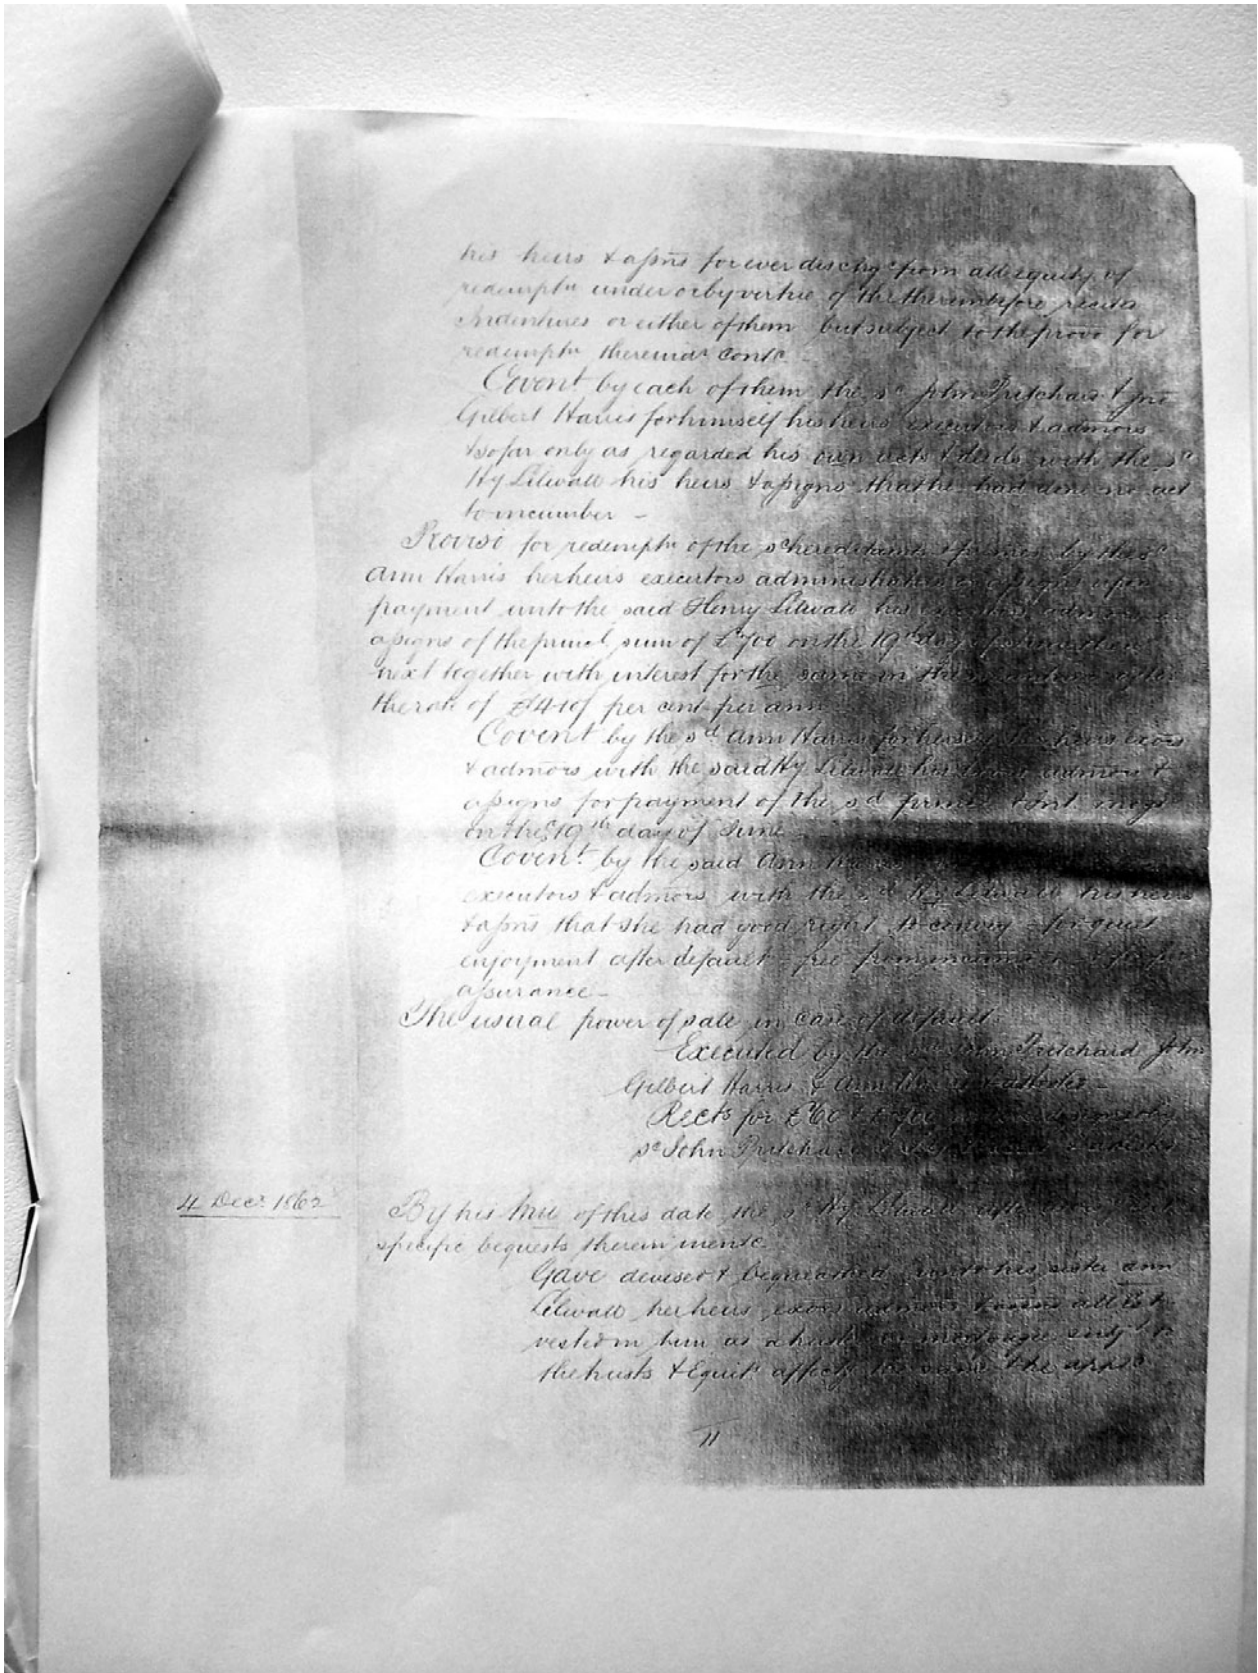 his heirs & assns for ever dischgd from all equity of
redemptn under or by virtue of the thereinbefore recited
Indentures or either of them but subject to the proviso for
redemptn thereinar contd
Covent by each of them the sd John Pritchard & Jno
Gilbert Harris for himself his heirs executors & admors
& so far only as regarded his own acts & deeds with the sd
Hy Lilwall his heirs & assigns that he had done no act
to incumber –
Proviso for redemptn of the sd hereditaments & premes by the sd
Ann Harris her heirs executors administrators or assigns upon
payment unto the said Henry Lilwall his executors admors or
assigns of the princl sum of £700 on the 19th day of June then
next together with interest for the same in the meantime after
the rate of £4.10/ per cent per ann
Covent by the sd Ann Harris for herself her heirs exors
& admors with the said Hy Lilwall his exors admors &
assigns for payment of the sd princl & int
on the 19th day of June –
Covent by the said Ann
executors & admors with the sd Hy Lilwall his heirs
& assns that she had good right to convey – for quiet
enjoyment after default – free from incumbces & for for
assurance –
The usual power of sale in case of default.
Executed by the sd John Pritchard John
Gilbert Harris & Ann Harris & attested –
Rects for £60 & £700
sd John Pritchard
4 Decr 1862
By his Will of this date the sd Hy Lilwall after
specific bequests therein mentd
Gave devised & bequeathed unto his sister Ann
Lilwall her heirs exors admors & assns all
vested in him as a trustee or mortgagee subjt to
the trusts & Equits affectg the same & he appd
11